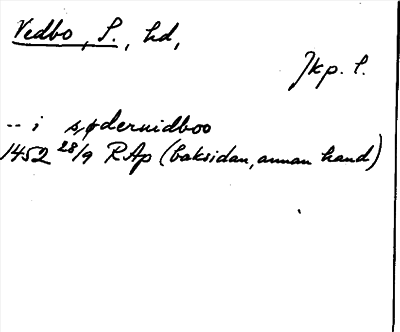 Vedbo, S., hd,
Jkp. l.
-- i sødernidboo
1452 28/9 RAp (baksidan, annan hand)